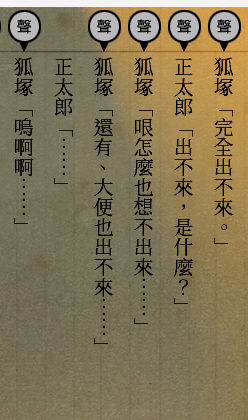 聲
狐塚「完全出不來。」
聲
正太郎「出不來，是什麼？」
聲
狐塚「哏怎麼也想不出來……」
聲
狐塚「還有、大便也出不來……」
正太郎「……」
聲
狐塚「嗚啊啊……」